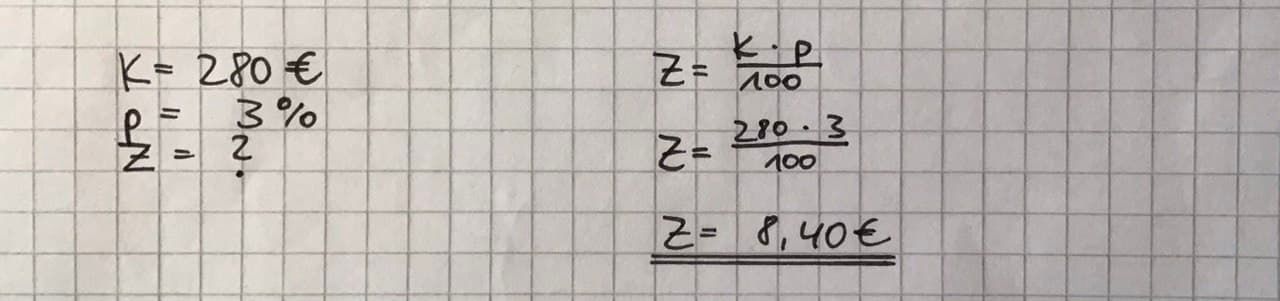 K = 280 €
p = 3 %
Z = ?
Z = K · p / 100
Z = 280 · 3 / 100
Z = 8,40 €